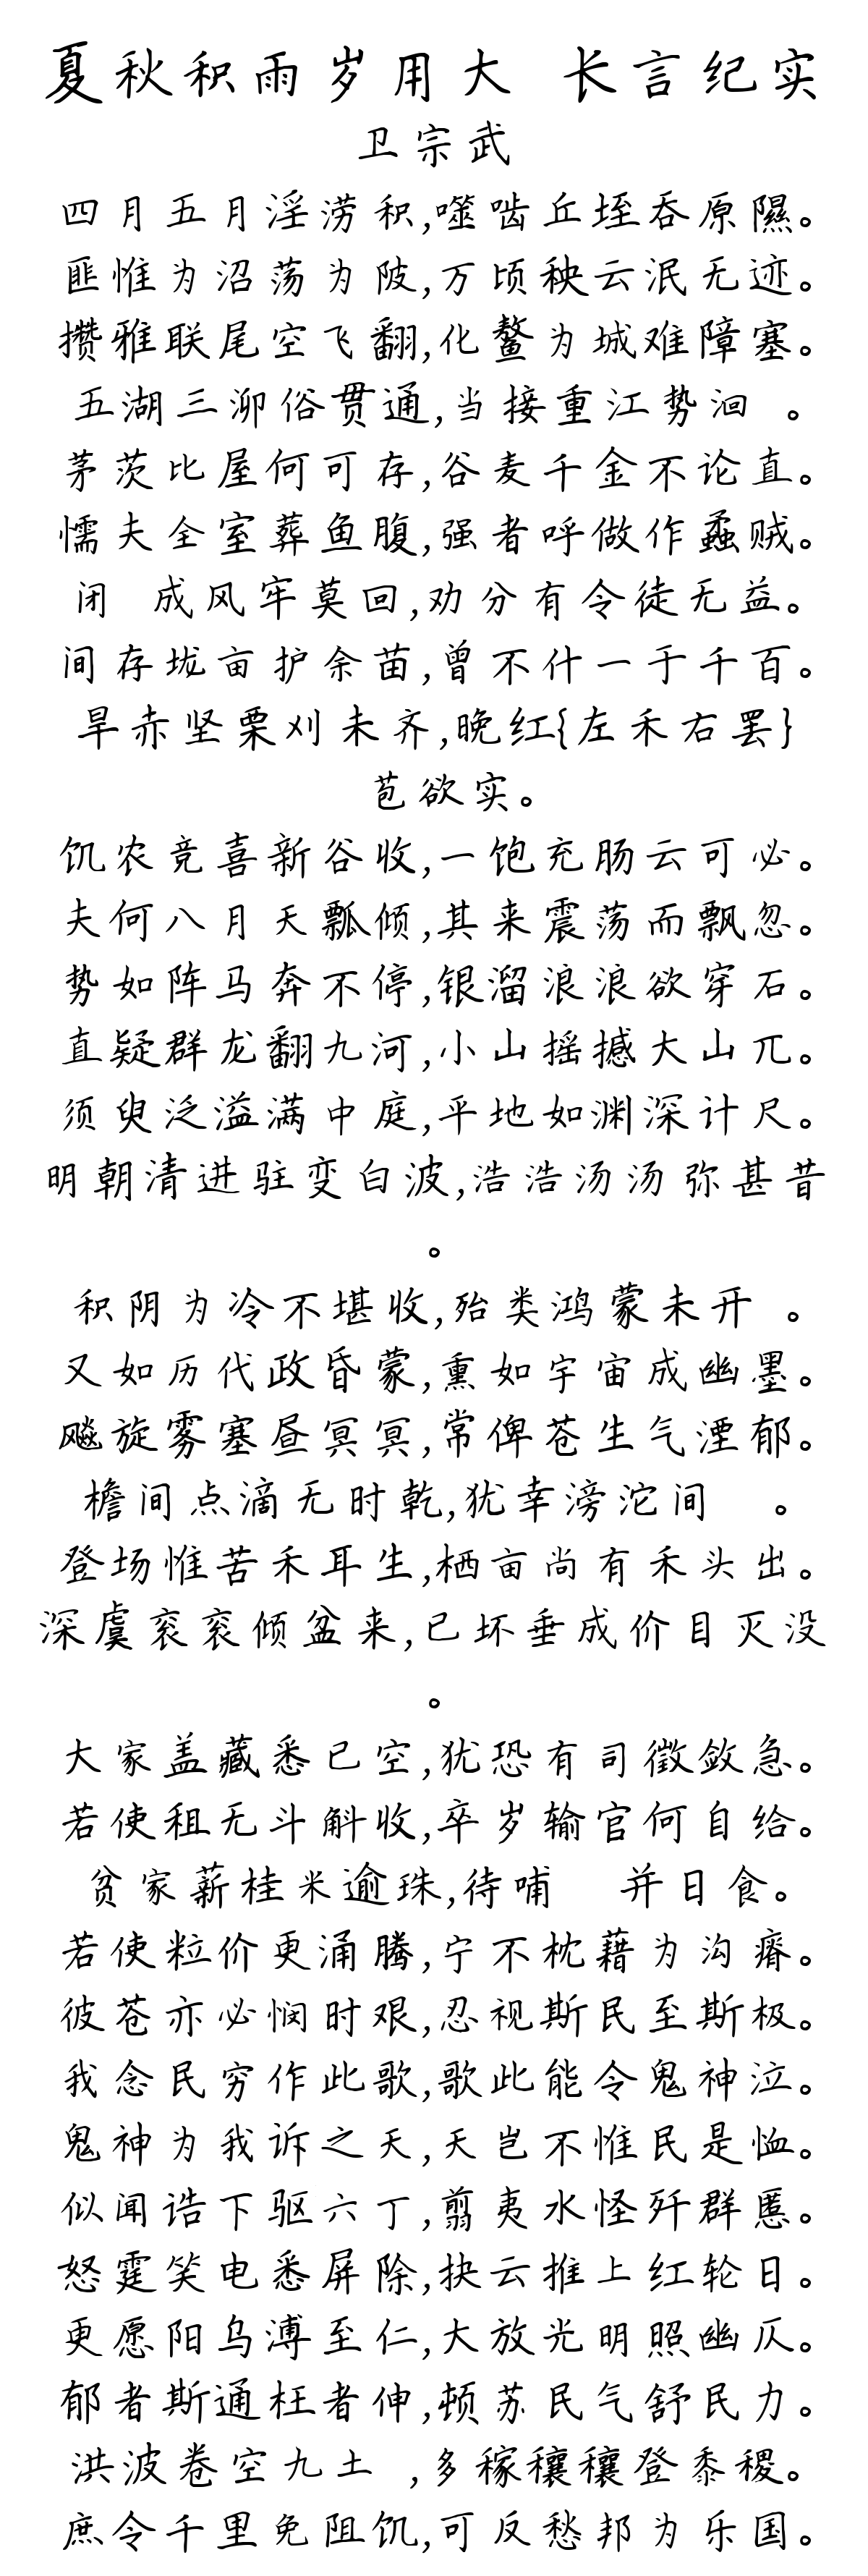 夏秋积雨岁用大 长言纪实
卫宗武
四月五月淫涝积,噬啮丘垤吞原隰。
匪惟为沼荡为陂,万顷秧云泯无迹。
攒雅联尾空飞翻,化鳌为城难障塞。
五湖三泖俗贯通,当接重江势洄 。
茅茨比屋何可存,谷麦千金不论直。
懦夫全室葬鱼腹,强者呼做作蟊贼。
闭 成风牢莫回,劝分有令徒无益。
间存垅亩护余苗,曾不什一于千百。
旱赤坚栗刈未齐,晚红{左禾右罢}
苞欲实。
饥农竞喜新谷收,一饱充肠云可必。
夫何八月天瓢倾,其来震荡而飘忽。
势如阵马奔不停,银溜浪浪欲穿石。
直疑群龙翻九河,小山摇撼大山兀。
须臾泛溢满中庭,平地如渊深计尺。
明朝清进驻变白波,浩浩汤汤弥甚昔
。
积阴为冷不堪收,殆类鸿蒙未开 。
又如历代政昏蒙,熏如宇宙成幽墨。
飚旋雾塞昼冥冥,常俾苍生气湮郁。
檐间点滴无时乾,犹幸滂沱间 。
登场惟苦禾耳生,栖亩尚有禾头出。
深虞衮衮倾盆来,已坏垂成价目灭没
。
大家盖藏悉已空,犹恐有司徵敛急。
若使租无斗斛收,卒岁输官何自给。
贫家薪桂米逾珠,待哺 并日食。
若使粒价更涌腾,宁不枕藉为沟瘠。
彼苍亦必悯时艰,忍视斯民至斯极。
我念民穷作此歌,歌此能令鬼神泣。
鬼神为我诉之天,天岂不惟民是恤。
似闻诰下驱六丁,翦夷水怪歼群慝。
怒霆笑电悉屏除,抉云推上红轮日。
更愿阳乌溥至仁,大放光明照幽仄。
郁者斯通枉者伸,顿苏民气舒民力。
洪波卷空九土 ,多稼穰穰登黍稷。
庶令千里免阻饥,可反愁邦为乐国。